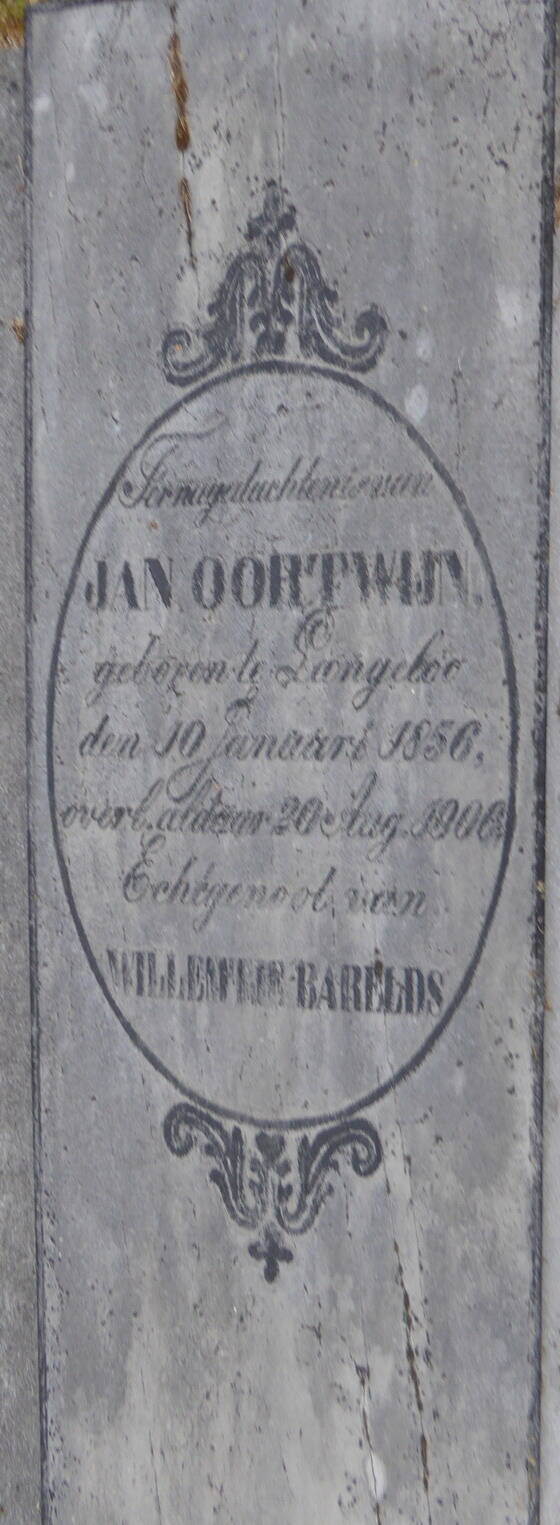 Ter nagedachtenis van
JAN OORTWIJN,
geboren te Langeloo
den 10 januari 1856,
overl. aldaar 20 Aug. 1906.
Echtgenoot van
WILLEMTJE BARELDS